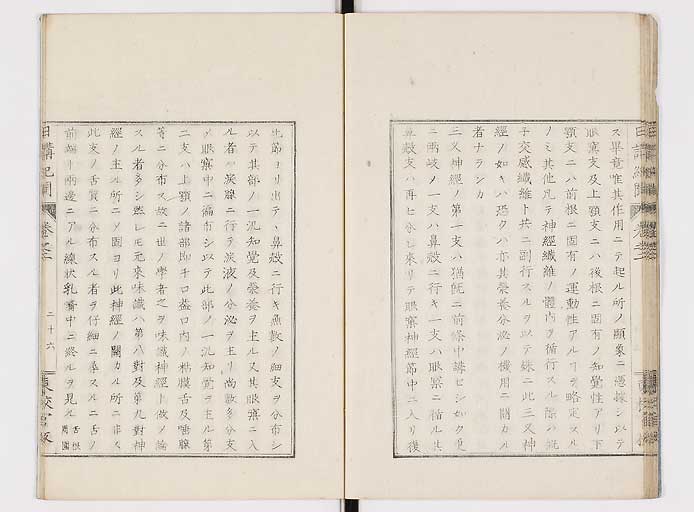 ス畢竟唯其作用ニテ起ル所ノ顯象ニ憑據シ以テ
眼窠支及上顎支ニハ後根ニ固有ノ知覺性アリ下
顎支ニハ前根ニ固有ノ運動性アルヿヲ略定スル
ノミ其他凡テ神經纖維ノ體内ヲ循行スル際ハ
子交感纖維ト共ニ副行スルヲ以テ殊ニ此三叉神
經ノ如キハ恐クハ亦其榮養分泌ノ機用ニ關カル
者ナランカ
三叉神經ノ第一支ハ猶既ニ前條中講ゼシ如ク更
ニ兩岐ノ一支ハ鼻殻ニ行キ一支ハ眼窠ニ循ル其
鼻殻支ハ再ヒ分レ來リテ眼窠神經節中ニ入リ後
此節ヨリ出テヽ鼻殻ニ行キ無數ノ細支ヲ分布シ
以テ其部ノ一汎知覺及榮養ヲ主ル又其眼窠ニ入
ル者ハ淚腺ニ行テ淚液ノ分泌ヲ主リ尚數多分支
眼窠中ニ徧布シ以テ此部ノ一汎知覺ヲ主ル第
二支ハ上顎ノ諸部即チ口蓋口内ノ粘膜舌及唾腺
等ニ分布ス故ニ世ノ學者之ヲ味識神經ト做ノ論
スル者多シ然レモ元來味識ハ第八對及第九對神
經ノ主ル所ニノ固ヨリ此神經ノ關カル所ニ非ス
此支ノ舌質ニ分布スル者ヲ仔細ニ撿スルニ舌ノ
前端ト兩邊ニアル線狀乳嘴中ニ終ルヲ見ル 舌根周圍
日講紀聞 卷之二 二十六 東校官版